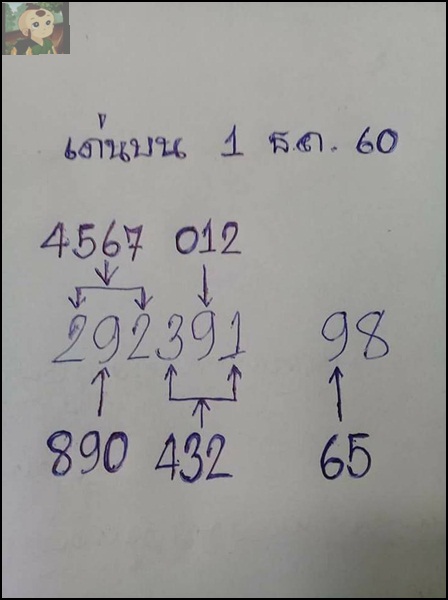 เด่นบน 1 ธ.ค. 60
4567 012
292391 98
890 432 65